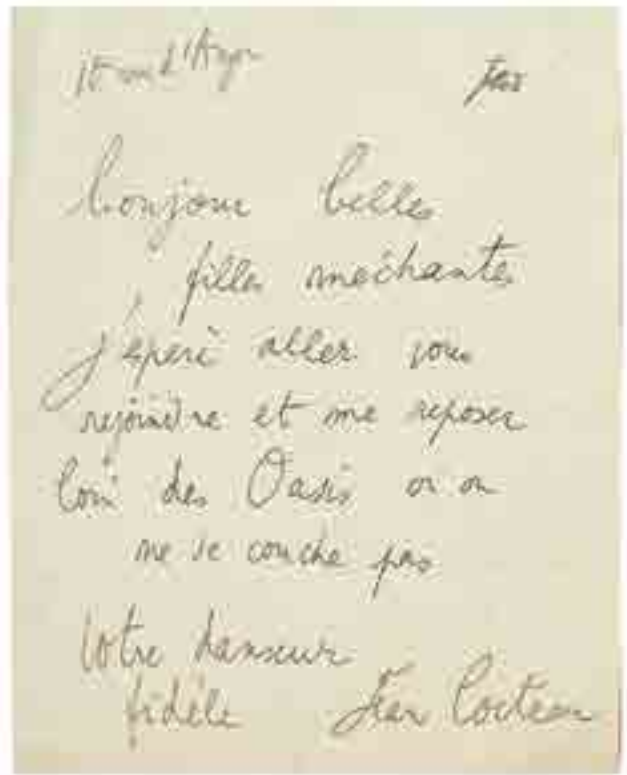 10 rue d'Anjou
bonjour belles
filles méchantes
j'espère aller vous
rejoindre et me reposer
loin des Oasis où on
ne se couche pas
Votre danseur
fidèle Jean Cocteau